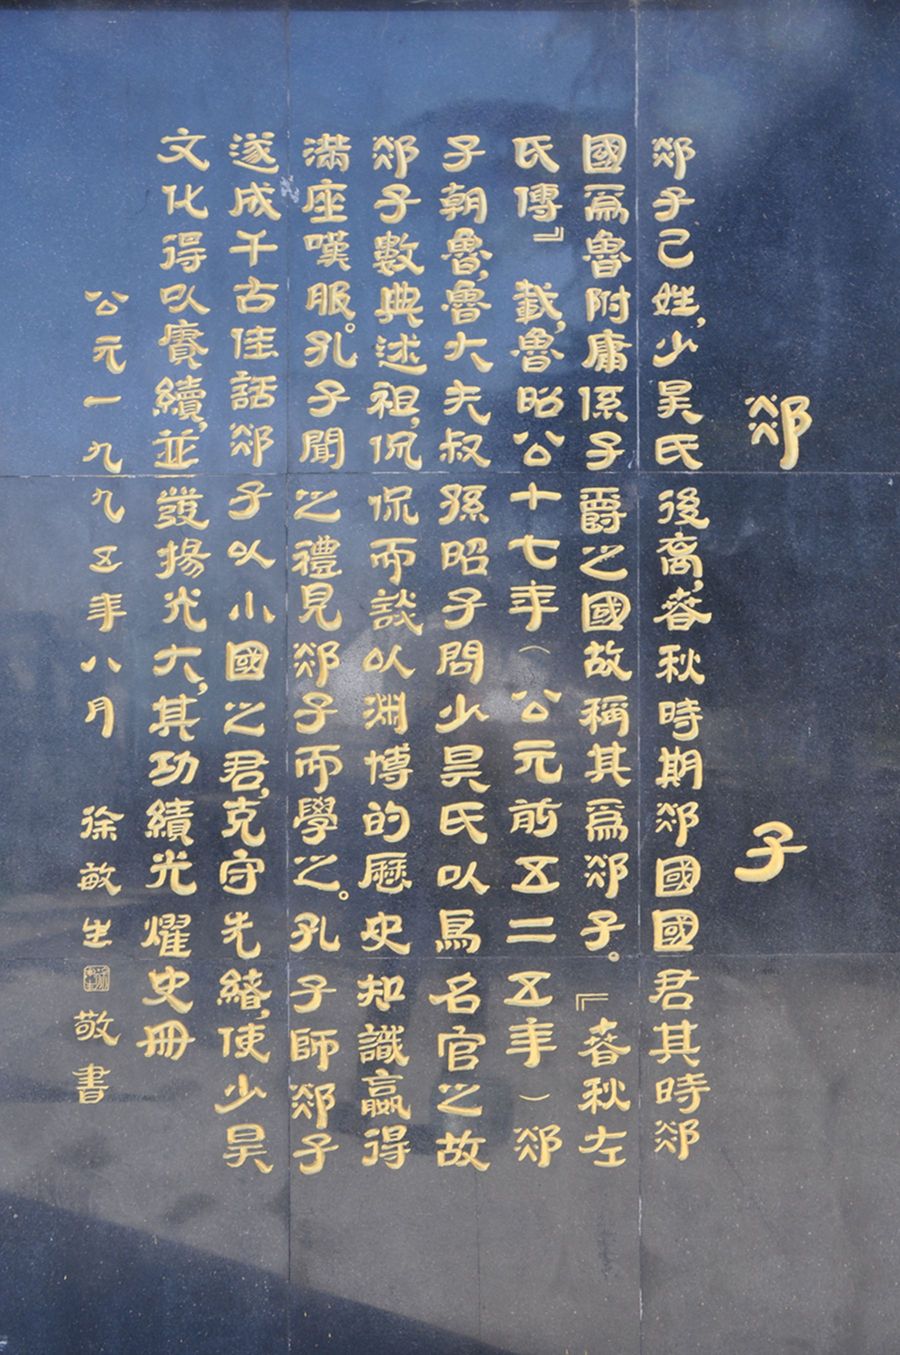 郯子
郯子己姓，少昊氏後裔，春秋時期郯國國君其時郯
國爲魯附庸係子爵之國故稱其爲郯子。『春秋左
氏傳』載，魯昭公十七年（公元前五二五年）郯
子朝魯，魯大夫叔孫昭子問少昊氏以鳥名官之故
郯子數典述祖，侃侃而談以淵博的歷史知識贏得
滿座嘆服。孔子聞之禮見郯子而學之。孔子師郯子
遂成千古佳話郯子以小國之君，克守先緒，使少昊
文化得以賡續，並發揚光大，其功績光燿史冊
公元一九九五年八月 徐敏生 敬書